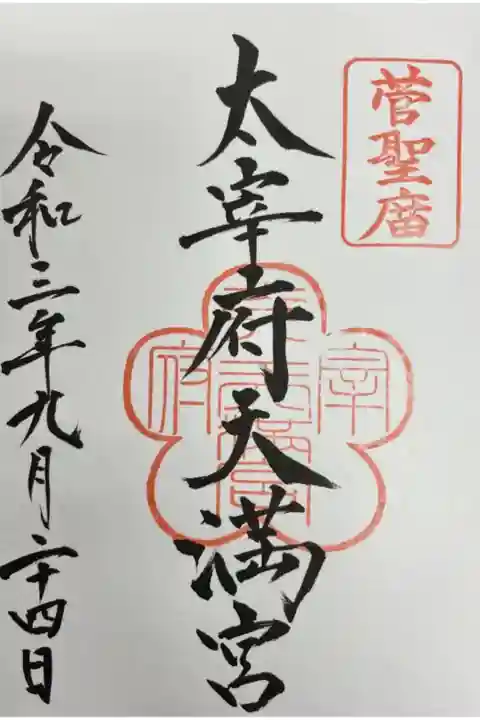 菅聖廟
太宰府天満宮
令和三年九月二十四日